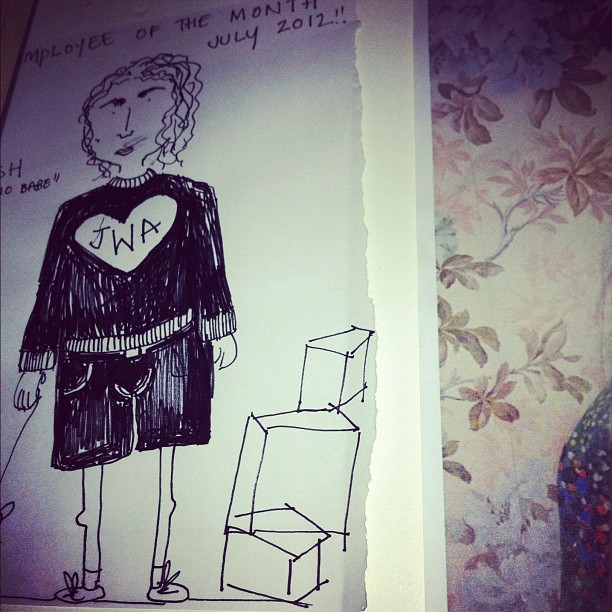 MPLOYEE OF THE MONTH
JULY 2012!!
SH
BABE"
JWA